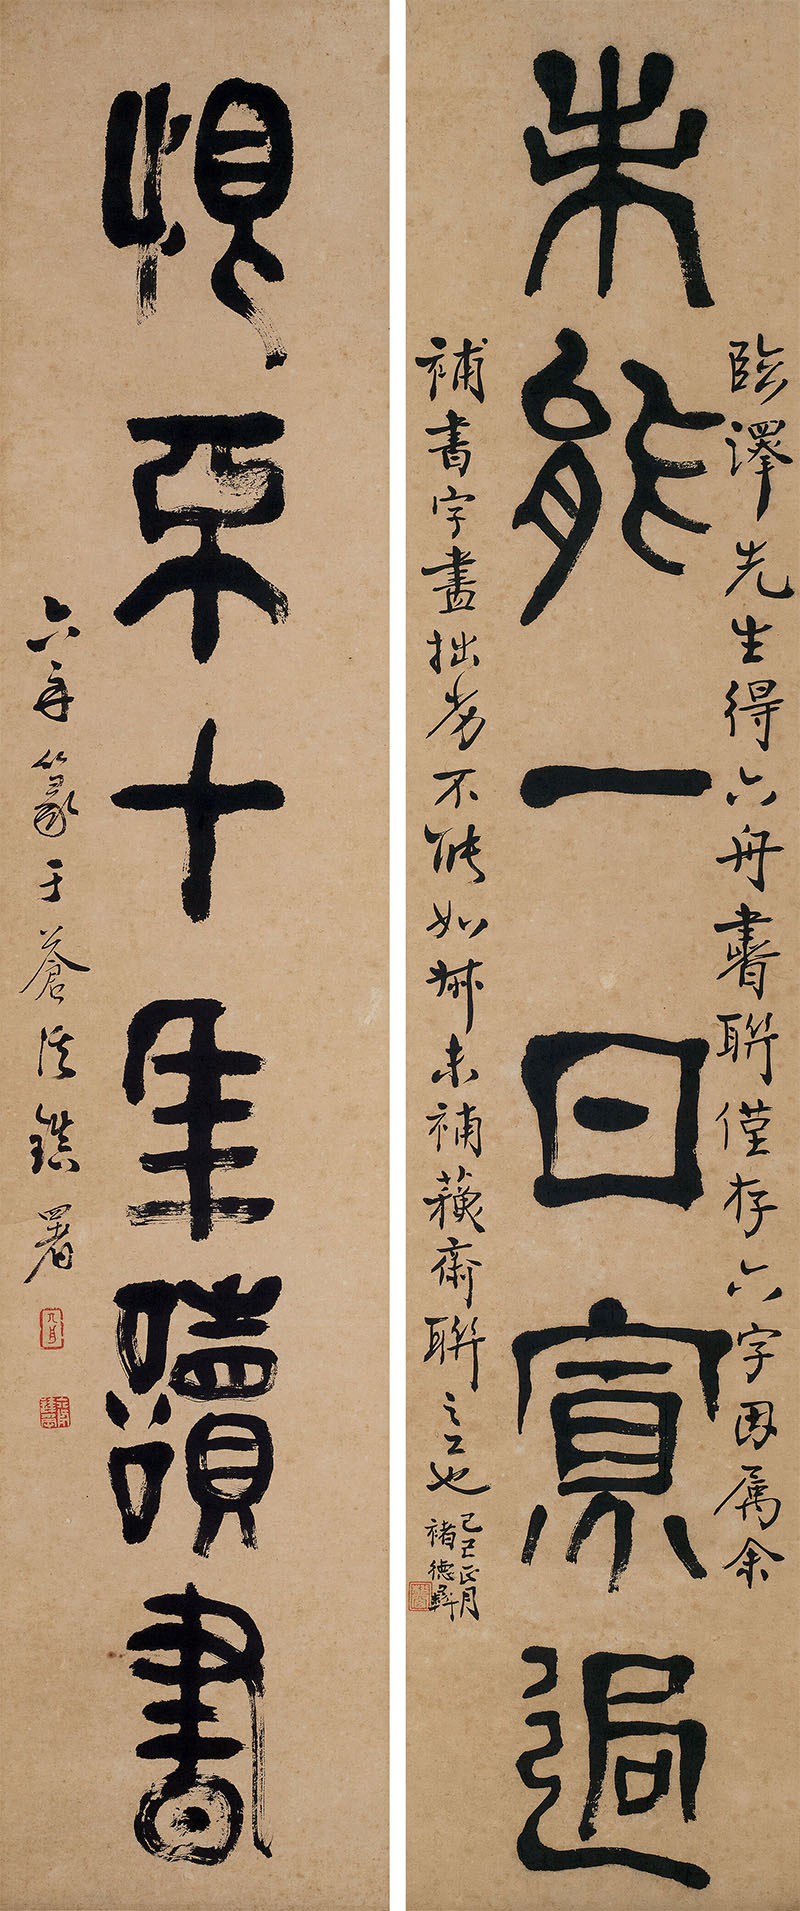 未能一日寡過
臨澤先生得六舟書聯僅存六字因屬余
補書字畫拙劣不能如叔未補蘓齋聯之工也
己巳正月
褚德彝
恨不十年讀書
六舟篆于蒼署